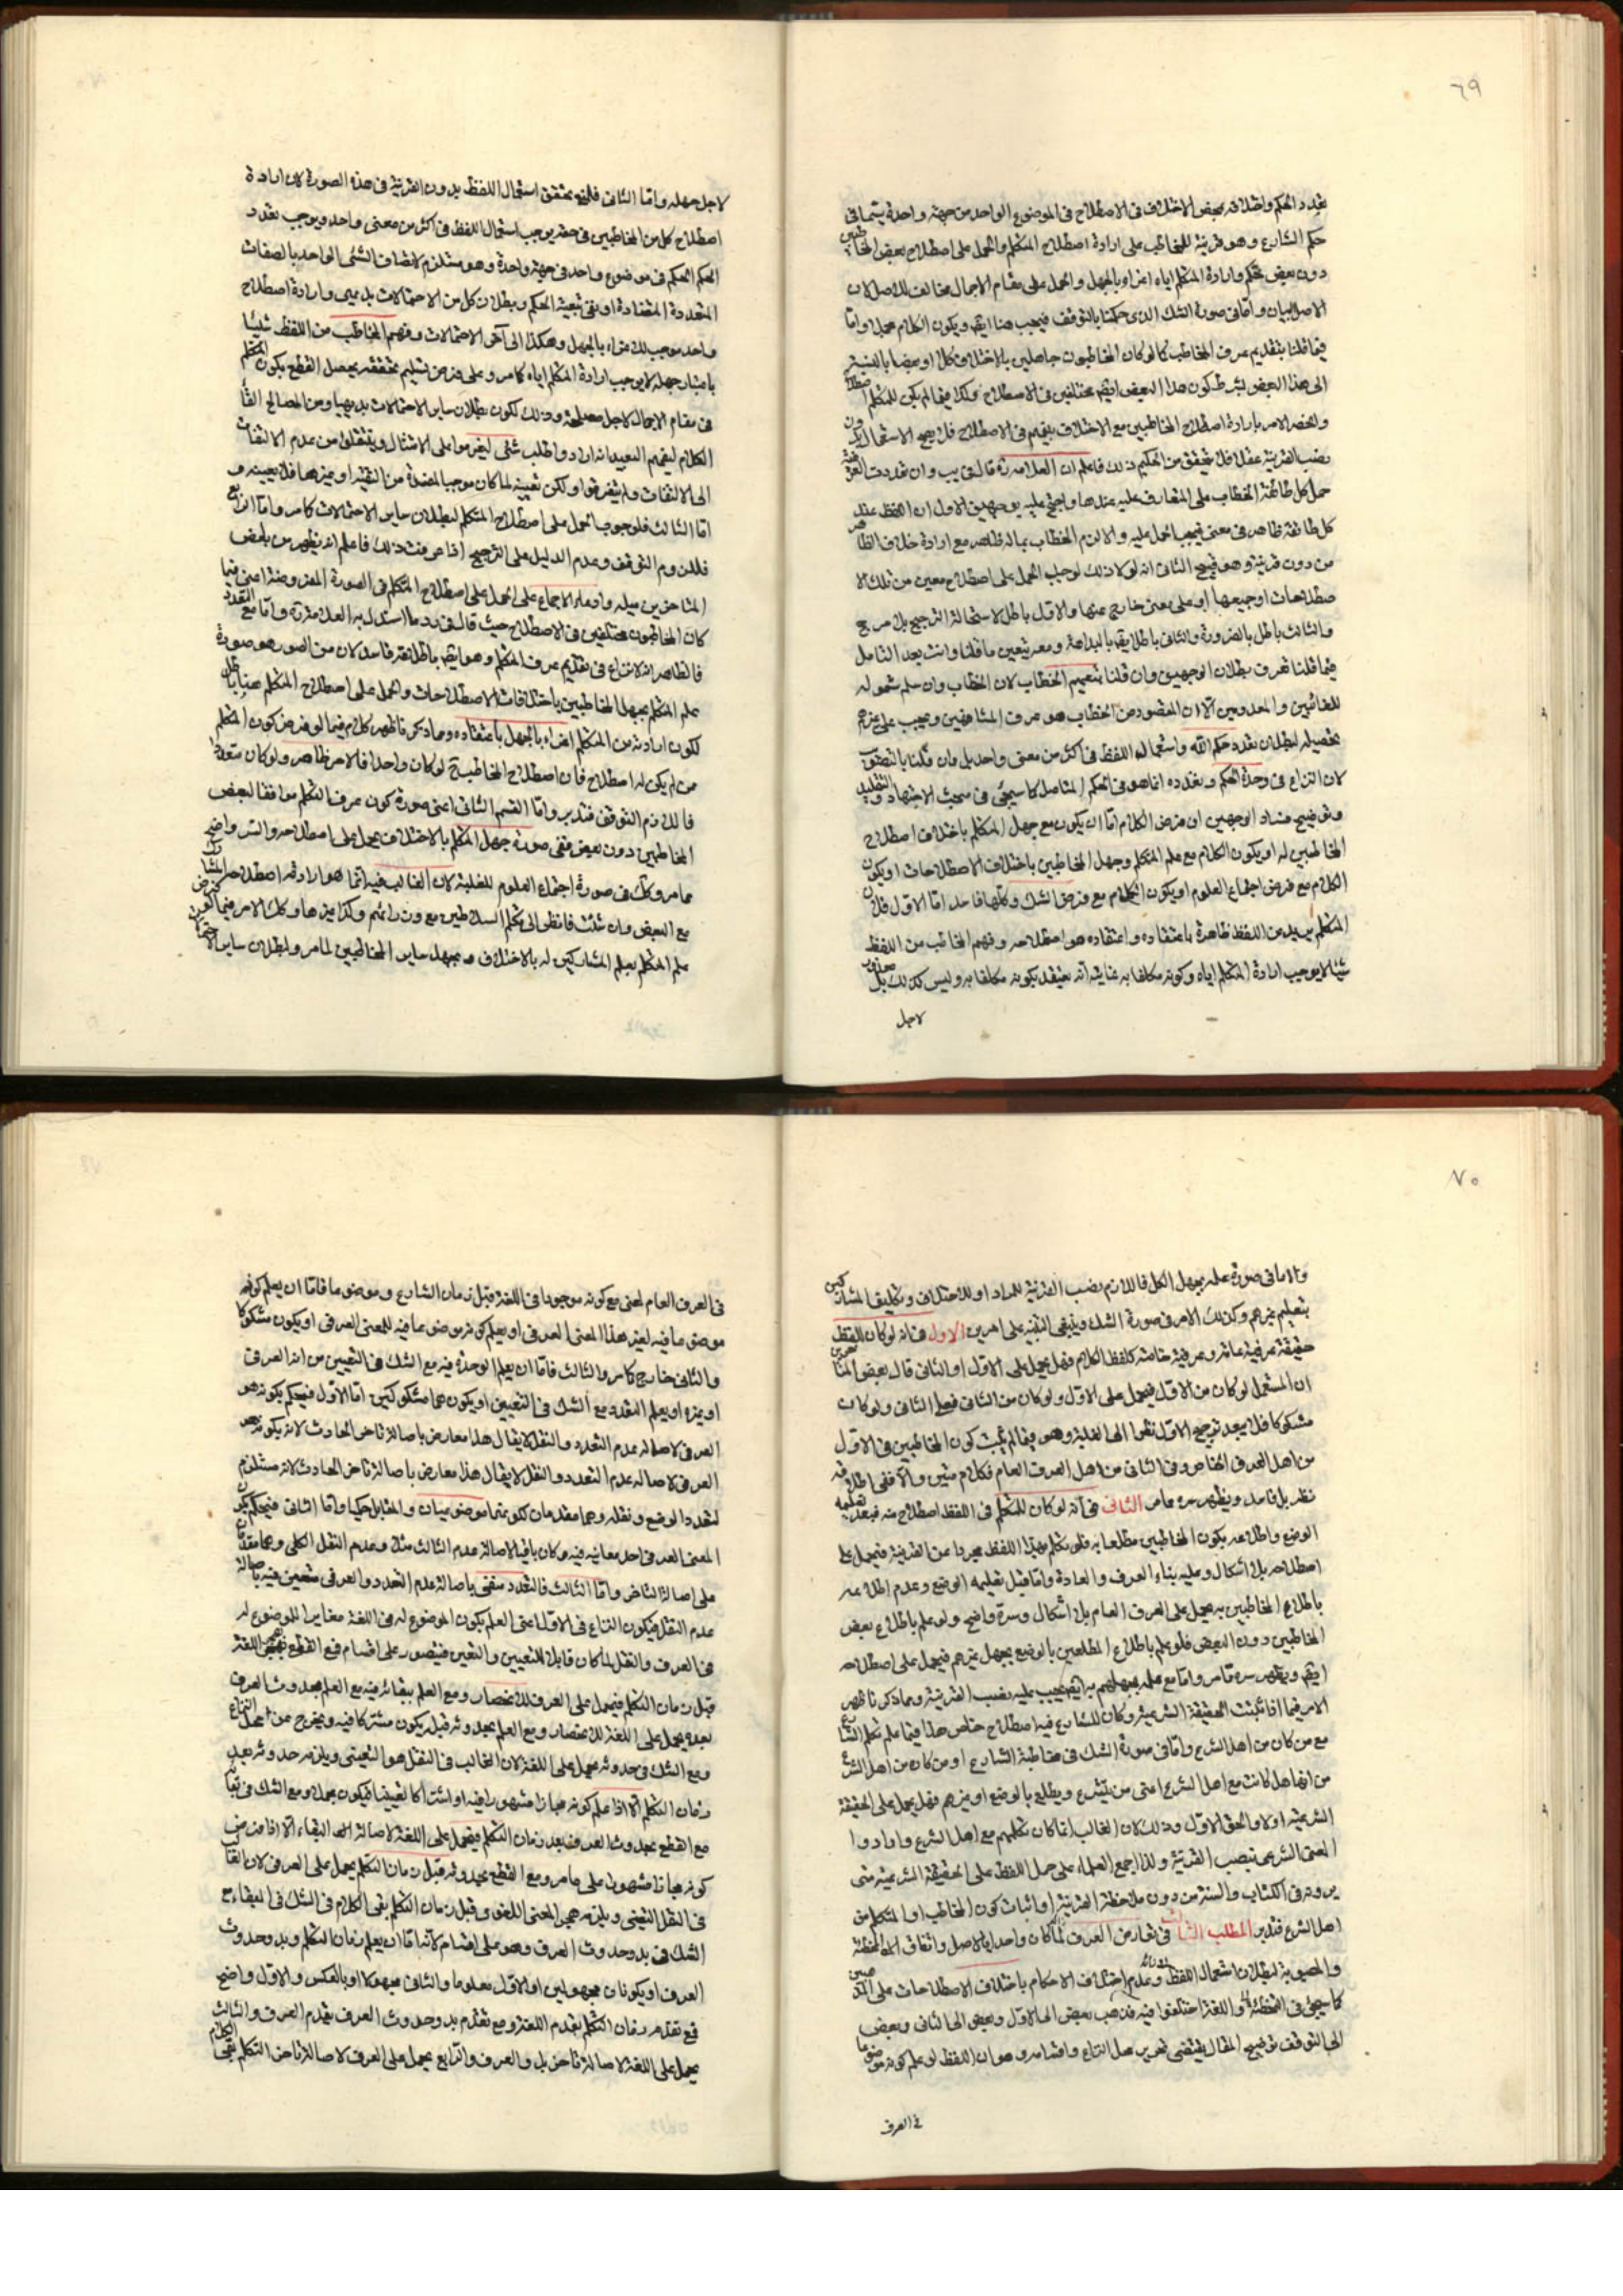 ٦٩
تعدد الحكم واختلافه بمحض الاختلاف في الاصطلاح في الموضوع الواحد من جهة واحدة يتما في
حكم الشارع وهو قرينة للمخاطب على ارادة اصطلاح المتكلم والحمل على اصطلاح بعض المخاطبين
دون بعض تحكم وارادة المتكلم اياه اغراء بالجهل والحمل على مقام الاجمال مخالف للاصل لان
الاصل البيان واما في صورة الشك الذي حكمنا بالتوقف فيجب هنا ايضا ويكون الكلام مجملا واما
فيما قلنا بتقديم عرف المخاطب كما لو كان المخاطبون جاهلين بالاختلاف كلا او بعضا بالنسبة
الى هذا البعض بشرط كون هذا البعض ايضا مختلفين في الاصطلاح وكذا فيما لم يكن للمتكلم اصطلاح
وانحصر الامر بارادة اصطلاح المخاطبين مع الاختلاف بينهم في الاصطلاح فلا يصح الاستعمال بدون
نصب القرينة عقلا فلا يتحقق من الحكيم ذلك فاعلم ان العلامة ره قال في يب وان تعددت العرفية
حمل كل طائفة الخطاب على المتعارف عليه عندها واحتج عليه بوجهين الاول ان اللفظ عند
كل طائفة ظاهر في معنى فيجب الحمل عليه والا لزم الخطاب بما له ظاهر مع ارادة خلاف الظاهر
من دون قرينة وهو قبيح الثاني انه لولا ذلك لوجب الحمل على اصطلاح معين من تلك الا
صطلاحات او جميعها او على معنى خارج عنها والاول باطل لاستحالة الترجيح بلا مرجح
والثالث باطل بالضرورة والثاني باطل ايضا بالبداهة ومعه يتعين ما قلنا وانت بعد التامل
فيما قلنا تعرف بطلان الوجهين وان قلنا بتعميم الخطاب لان الخطاب وان سلم شموله
للغائبين والمعدومين الا ان المقصود من الخطاب هو عرف المشافهين ويجب على غيرهم
تحصيله لبطلان تعدد حكم الله واستعماله اللفظ في اكثر من معنى واحد بل وان قلنا بالتصويب
لان النزاع في وحدة الحكم وتعدده انما هو في الحكم المتاصل كما سيجئ في مبحث الاجتهاد والتقليد
وتوضيح فساد الوجهين ان فرض الكلام اما ان يكون مع جهل المتكلم باختلاف اصطلاح
المخاطبين له او يكون الكلام مع علم المتكلم وجهل المخاطبين باختلاف الاصطلاحات او يكون
الكلام مع فرض اجتماع العلوم او يكون الكلام مع فرض الشك وكلها فاسد اما الاول فلان
المتكلم يريد من اللفظ ظاهره باعتقاده واعتقاده هو اصطلاحه وفهم المخاطب من اللفظ
شيئا لا يوجب ارادة المتكلم اياه وكونه مكلفا به غايته انه يعتقد بكونه مكلفا به وليس كذلك بل معذور
لاجل
لاجل جهله واما الثاني فلانه يتحقق استعمال اللفظ بدون القرينة في هذه الصورة لان ارادة
اصطلاح كل من المخاطبين في حقه يوجب استعمال اللفظ في اكثر من معنى واحد ويوجب تعدد
الحكم الحكيم في موضوع واحد في جهة واحدة وهو مستلزم لاتصاف الشئ الواحد بالصفات
المتعددة المتضادة او نفي تبعية الحكم وبطلان كل من الاحتمالات بديهي وارادة اصطلاح
واحد موجب للاغراء بالجهل وهكذا الى آخر الاحتمالات وفهم المخاطب من اللفظ شيئا
باعتبار جهله لا يوجب ارادة المتكلم اياه كما مر وعلى فرض تسليم تحققه يحصل القطع بكون المتكلم
في مقام الاجمال لاجل مصلحة وذلك لكون بطلان ساير الاحتمالات بديهيا ومن المصالح القاء
الكلام ليفهم العبيد انه اراد واطلب شئ ليعزموا على الامتثال وينتقلوا من عدم الالتفات
الى الالتفات ولم يتفرقوا ولكن تعيينه لما كان موجبا لمفسدة من التقية او غيرها فلا يعينه و
اما الثالث فلوجوب الحمل على اصطلاح المتكلم لبطلان ساير الاحتمالات كما مر واما الرابع
فللزوم التوقف وعدم الدليل على الترجيح اذا عرفت ذلك فاعلم انه يظهر من بعض
المتاخرين ميله وادعاه الاجماع على الحمل على اصطلاح المتكلم في الصورة المفروضة اعني فيما
كان المخاطبون مختلفين في الاصطلاح حيث قال في رد ما استدل به العلامة ره واما مع التعدد
فالظاهر انه لا نزاع في تقديم عرف المتكلم وهو ايضا باطلاقه فاسد لان من الصور هو صورة
علم المتكلم بجهل المخاطبين باختلافات الاصطلاحات والحمل على اصطلاح المتكلم هنا باطل
لكون ارادته من المتكلم اغراء بالجهل باعتقاده ومما ذكر نا ظهر كلام فيما لو فرض كون المتكلم
ممن لم يكن له اصطلاح فان اصطلاح المخاطبة لو كان واحدا فالامر ظاهر ولو كان متعددا
فاللازم التوقف فتدبر واما القسم الثاني اعني صورة كون عرف المتكلم موافقا لبعض
المخاطبين دون بعض ففي صورة جهل المتكلم بالاختلاف يحمل على اصطلاحه والسر واضح
مما مر وكك في صورة اجتماع العلوم للغلبة لان الغالب فيه انما هو ارادة اصطلاحه المشارك
مع البعض وان شئت فانظر الى تكلم السلاطين مع وزرائهم وكذا غيرها وكك الامر فيما لو فرض
علم المتكلم بعلم المشاركين له بالاختلاف وبجهل ساير المخاطبين لما مر ولبطلان ساير الاحتمالات
٧٠
والا ما في صورة علمه بجهل الكل فاللازم نصب القرينة للمراد او للاختلاف وتكليف المشاركين
بتعليم غيرهم وكذلك الامر في صورة الشك وينبغي التنبيه على امرين الاول هو انه لو كان اللفظ
حقيقة عرفية عامة وعرفية خاصة كلفظ الكلام فهل يحمل على الاول او الثاني قال بعض المتاخرين
ان المستعمل لو كان من الاول فيحمل على الاول ولو كان من الثاني فعلى الثاني ولو كان
مشكوكا فلا يبعد ترجيح الاول نظرا الى الغلبة وهو فيما لم يثبت كون المخاطبين في الاول
من اهل العرف الخاص وفي الثاني من اهل العرف العام فكلام متين والا ففي اطلاقه
نظر بل فاسد ويظهر سره مما مر الثاني في انه لو كان للمتكلم في اللفظ اصطلاح منه فبعد تعليمه
الوضع واطلاعه بكون المخاطبين مطلعا به فلو تكلم بهذا اللفظ مجردا عن القرينة فيحمل على
اصطلاحه بلا اشكال وعليه بناء العرف والعادة واما قبل تعليمه الوضع وعدم اطلاعه
باطلاع المخاطبين به يحمل على العرف العام بلا اشكال وسره واضح ولو علم باطلاع بعض
المخاطبين دون البعض فلو علم باطلاع المطلعين بالوضع بجهل غيرهم فيحمل على اصطلاحه
ايضا ويظهر سره مما مر واما مع علمه بجهلهم به ايضا يجب عليه نصب القرينة ومما ذكرنا ظهر
الامر فيما اذا ثبتت الحقيقة الشرعية وكان للشارع فيه اصطلاح خاص هذا فيما علم تكلم الشارع
مع من كان من اهل الشرع واما في صورة الشك في مخاطبة الشارع او من كان من اهل الشرع
من انها هل كانت مع اهل الشرع اعني من يتشرع ويطلع بالوضع او غيرهم فهل يحمل على الحقيقة
الشرعية اولا والحق الاول وذلك لان الغالب انما كان تكلمهم مع اهل الشرع وارادوا
المعنى الشرعي بنصب القرينة ولذا اجمع العلماء على حمل اللفظ على الحقيقة الشرعية متى
يرونه في الكتاب والسنة من دون ملاحظة القرينة او اثبات كون المخاطب او المتكلم من
اهل الشرع فتدبر المطلب الثالث في تعارض العرف لما كان واحدا بالاصل واتفاق المخطئة
والمصوبة لبطلان استعمال اللفظ وعدم اختلاف الاحكام باختلاف الاصطلاحات على المذهبين
كما سيجئ في التخطئة واللغة اختلفوا فيه فذهب بعض الى الاول وبعض الى الثاني وبعض
الى التوقف توضيح المقال يقتضي تحرير محل النزاع واقسامه وهو ان اللفظ لو علم كونه موضوعا
في العرف
في العرف العام لمعنى مع كونه موجودا في اللغة قبل زمان الشارع وموضوعا فاما ان يعلم كونه
موضوعا فيه لغير هذا المعنى العرفي او يعلم كونه موضوعا فيه للمعنى العرفي او يكون مشكوكا
والثاني خارج كما مر والثالث فاما ان يعلم الوحدة فيه مع الشك في التعيين من انه العرفي
او غيره او يعلم التعدد مع الشك في التعيين او يكون هما مشكوكين اما الاول فيحكم بكونه هو
العرفي لاصالة عدم التعدد والنقل لا يقال هذا معارض باصالة تاخر الحادث لانه بكونه هو
العرفي لاصالة عدم التعدد والنقل لا يقال هذا معارض باصالة تاخر الحادث لانه مستلزم
لتعدد الوضع ونقله وهما مقدمان لكونهما موضوعيان والمقابل حكميا واما الثاني فيحكم بكون
المعنى العرفي احد معانيه فيه وكان باقيا لاصالة عدم الثالث مثلا وعدم النقل الكلي وهما مقدمان
على اصالة التاخر واما الثالث فالتعدد منفي باصالة عدم التعدد والعرفي متعين فيه باصالة
عدم النقل فيكون النزاع في الاول اعني العلم بكون الموضوع له في اللغة مغايرا للموضوع له
في العرف والنقل لما كان قابلا للتعيين والتعين فيتصور على اقسام فمع القطع بهجر اللغة
قبل زمان التكلم فيحمل على العرف للانحصار ومع العلم ببقائه فيه مع العلم بحدوث العرف
بعده يحمل على اللغة للانحصار ومع العلم بحدوثه قبله يكون مشتركا فيه ويخرج عن محل النزاع
ومع الشك في حدوثه يحمل على اللغة لان الغالب في النقل هو التعيني ويلزمه حدوثه بعد
زمان التكلم الا اذا علم كونه مجازا مشهورا فيه او اشتراكا تعيينا فيكون مجملا ومع الشك في بقائه
مع القطع بحدوث العرف بعد زمان التكلم فيحمل على اللغة لاصالة البقاء الا اذا فرض
كونه مجازا مشهورا على ما مر ومع القطع بحدوثه قبل زمان التكلم يحمل على العرف لان الغالب
في النقل التعيني ويلزمه هجر المعنى اللغوي وقبل زمان التكلم بقي الكلام في الشك في البقاء مع
الشك في بدو حدوث العرف وهو على اقسام لانه اما ان يعلم زمان التكلم وبدو حدوث
العرف او يكونان مجهولين او الاول معلوما والثاني مجهولا او بالعكس والاول واضح
فمع تقدم زمان التكلم يقدم اللغة ومع تقدم بدو حدوث العرف يقدم العرف والثالث
يحمل على اللغة لاصالة تاخر بدو العرف والرابع يحمل على العرف لاصالة تاخر التكلم بقي الكلام